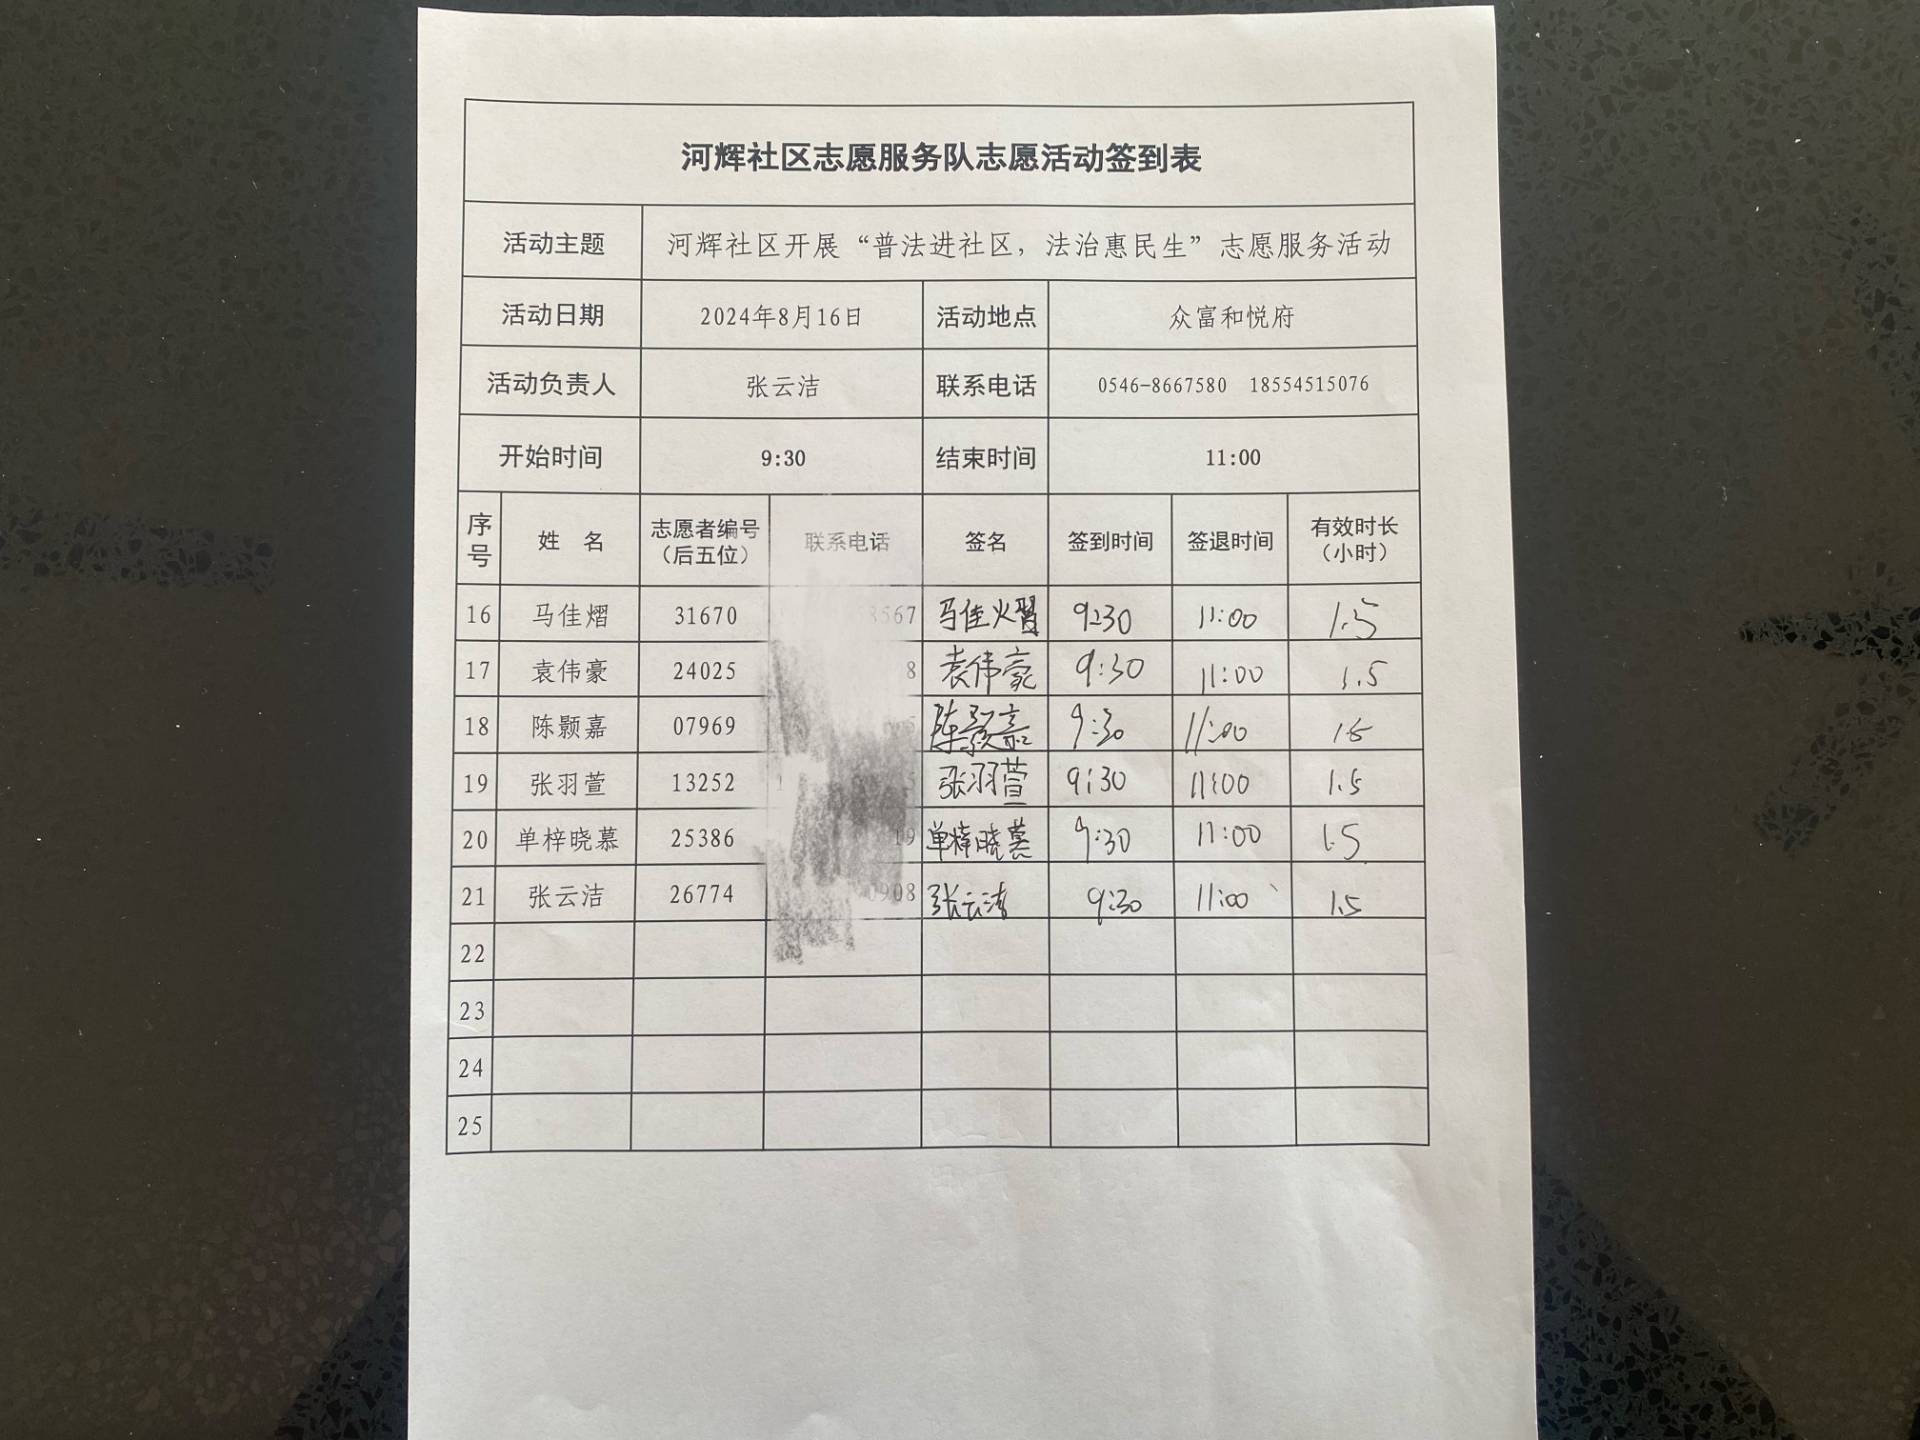 河辉社区志愿服务队志愿活动签到表
活动主题 河辉社区开展“普法进社区，法治惠民生”志愿服务活动
活动日期 2024年8月16日 活动地点 众富和悦府
活动负责人 张云洁 联系电话 0546-8667580 18554515076
开始时间 9:30 结束时间 11:00
序号 姓 名 志愿者编号（后五位） 联系电话 签名 签到时间 签退时间 有效时长（小时）
16 马佳熠 31670 马佳熠 9:30 11:00 1.5
17 袁伟豪 24025 袁伟豪 9:30 11:00 1.5
18 陈颢嘉 07969 陈颢嘉 9:30 11:00 1.5
19 张羽萱 13252 张羽萱 9:30 11:00 1.5
20 单梓晓慕 25386 单梓晓慕 9:30 11:00 1.5
21 张云洁 26774 张云洁 9:30 11:00 1.5
22
23
24
25